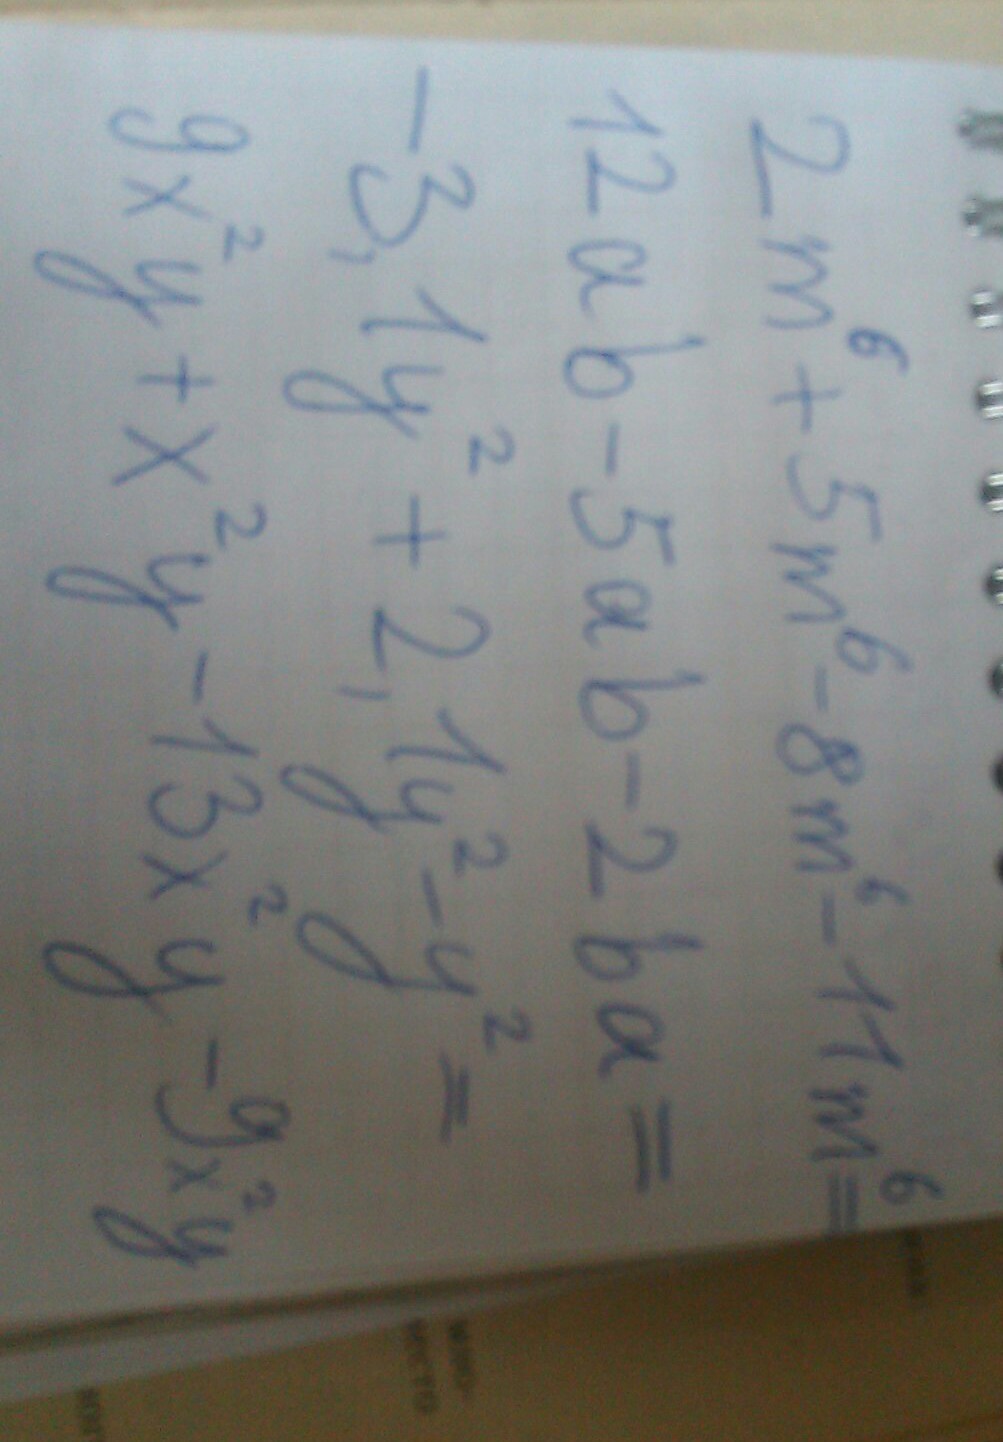 2m⁶+5m⁶-8m⁶-11m⁶=
12ab-5ab-2ba=
-3,1y²+2,1y²-y²=
9x²y+x²y-13x²y-9x²y
место